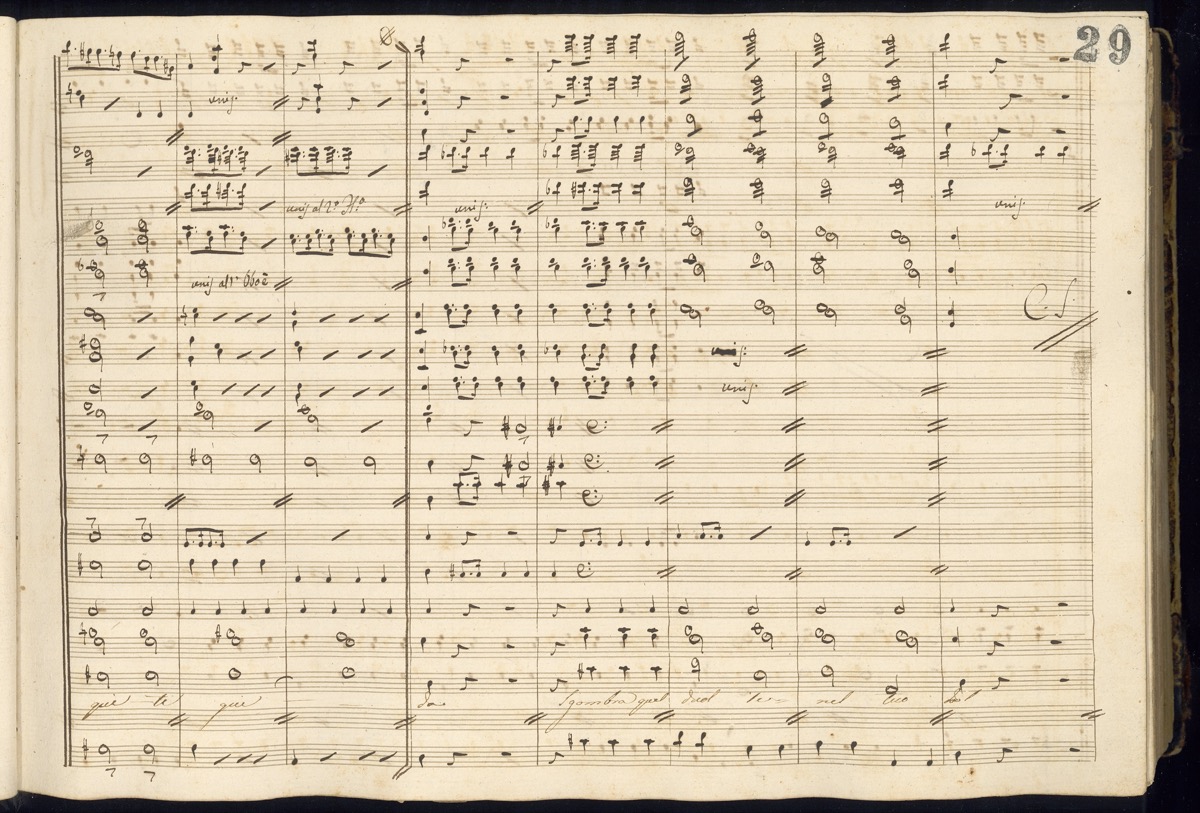 29
unis:
unis al 2º
unis: unis:
unis al 1º Oboè
unis:
unis:
C. S.
quie te quie da Sgombra quel duol nel tuo